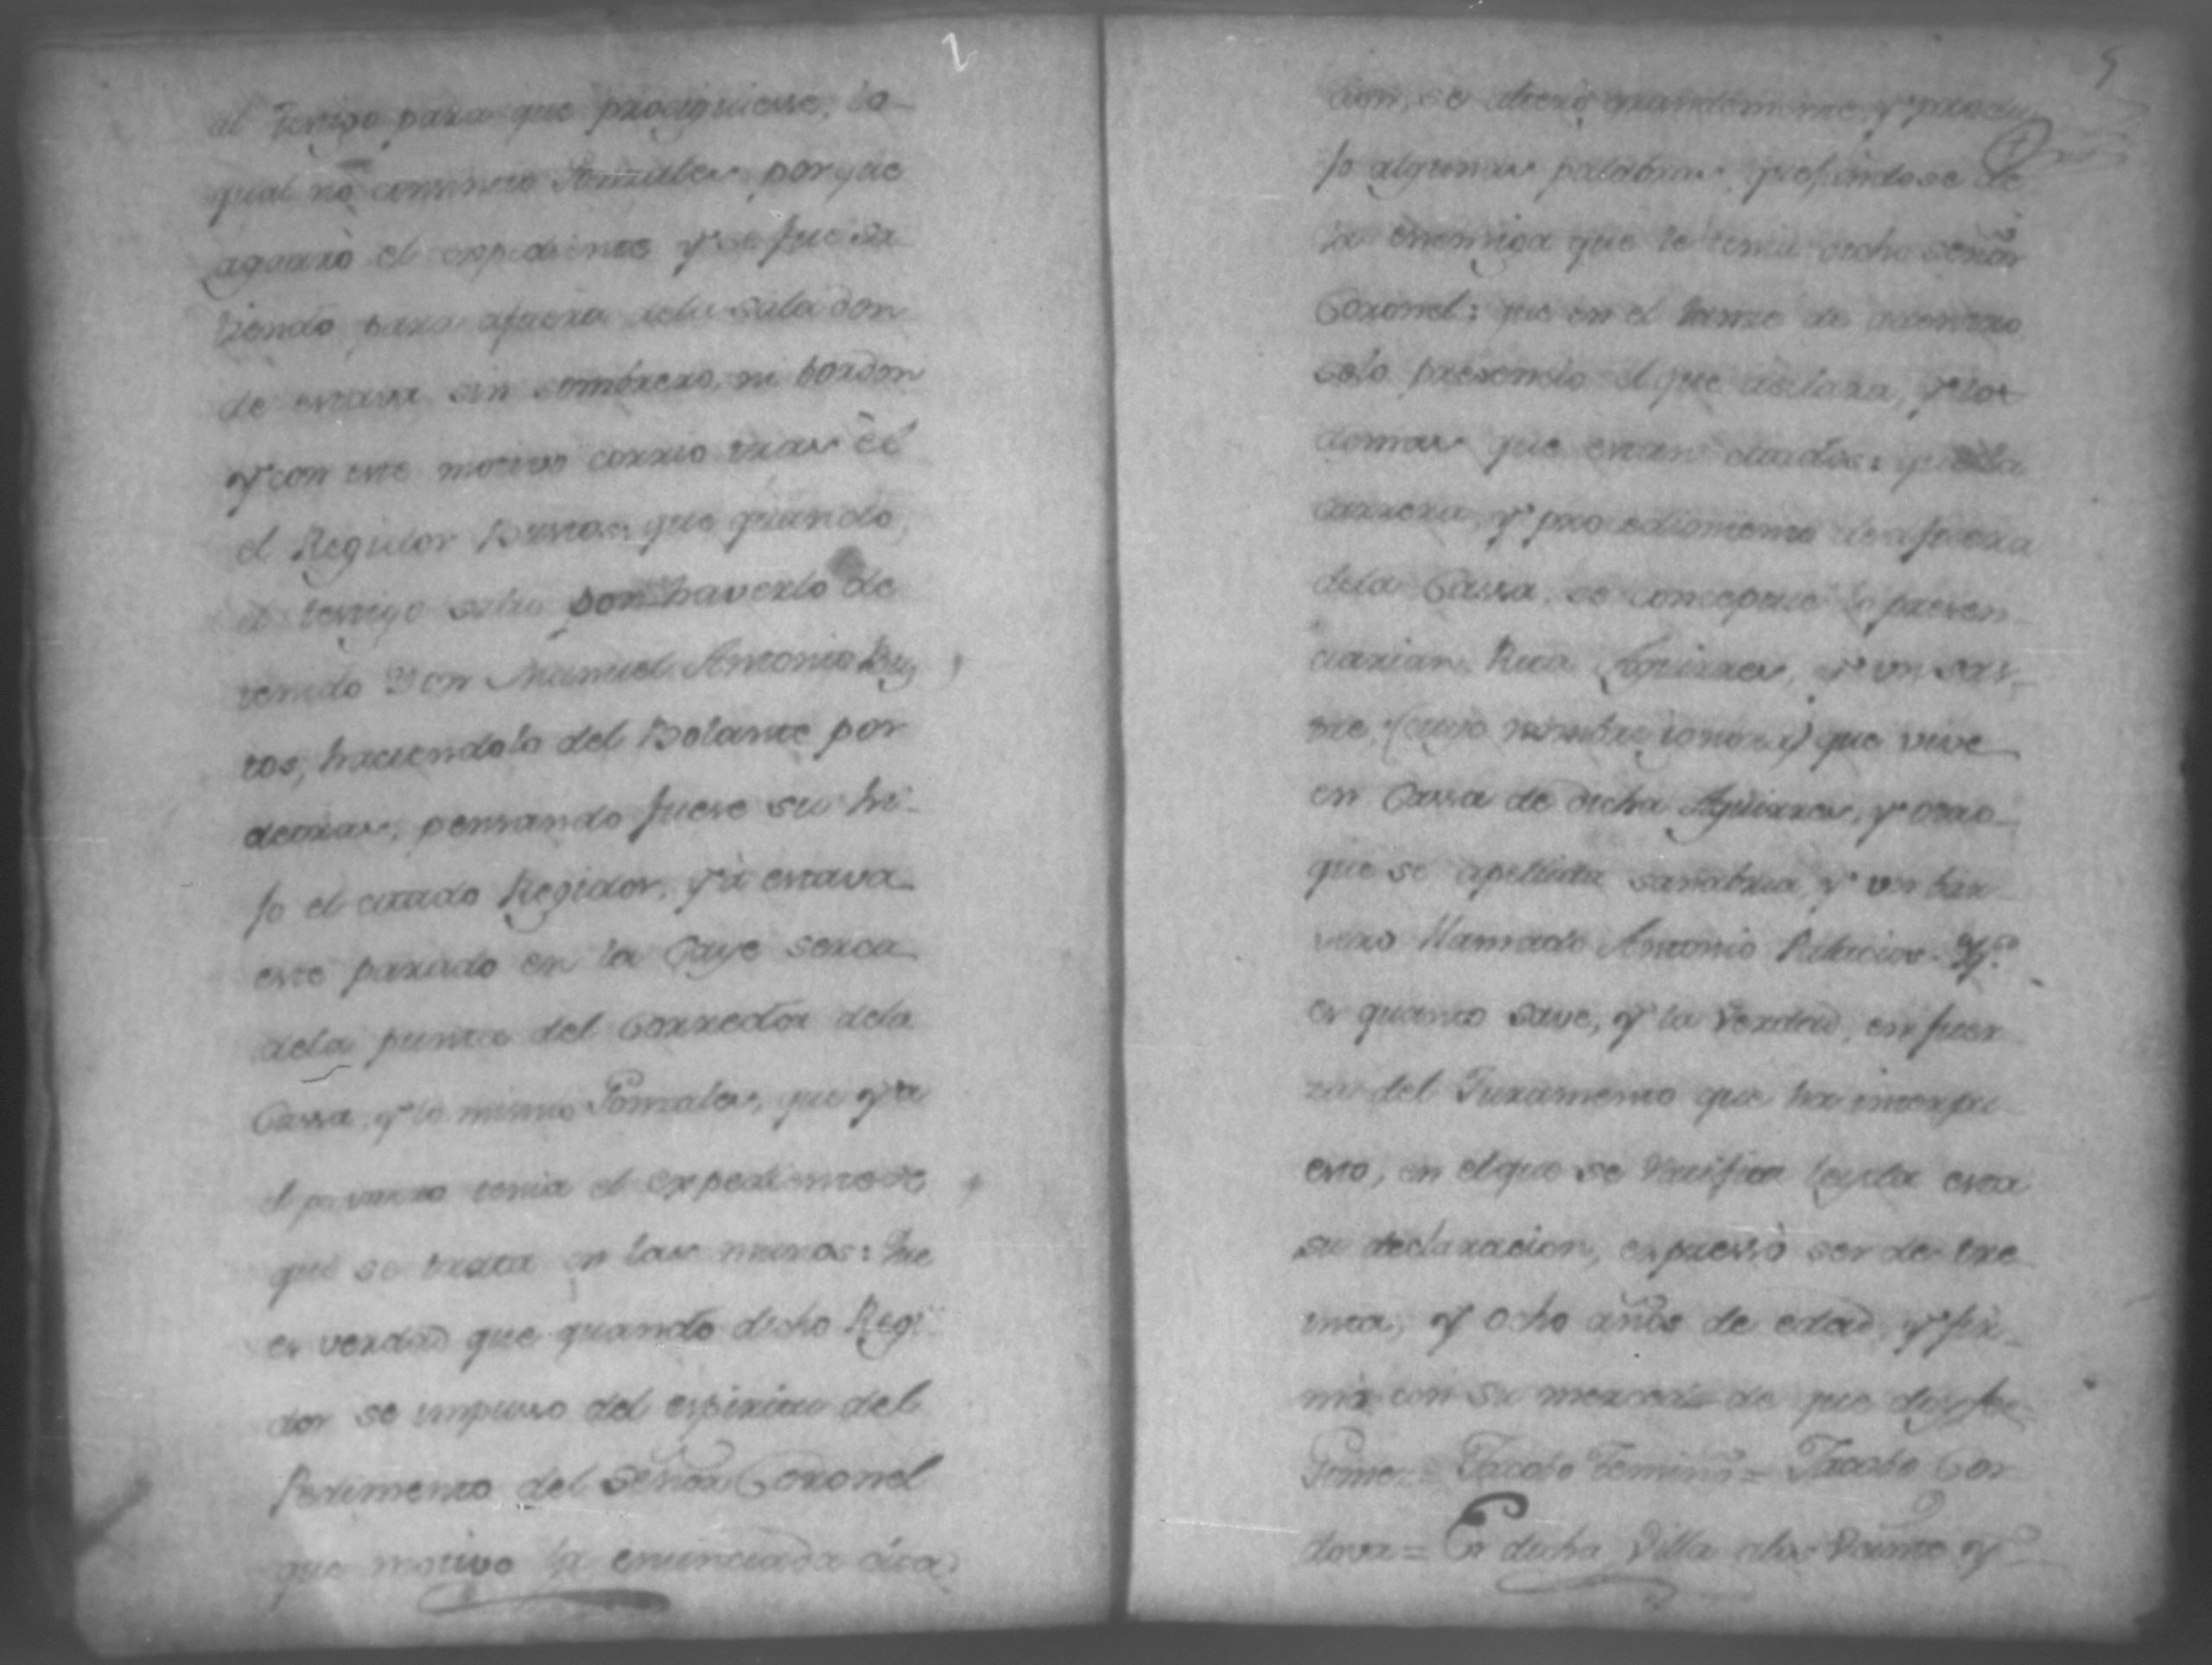 al testigo para que prosiguiesse, lo
qual no consintio Gonzales, porque
agarrò el expediente y se fue sa
liendo para afuera dela sala don
de estava sin sombrero, ni bordon
y con este motivo corrio tras èl
el Regidor Bustos: que quando
el testigo salio por haverlo de
tenido Don Manuel Antonio Bus
tos, haciendolo del Bolante por
detras, pensando fuese su hi
jo el citado Regidor, yà estava
este parado en la Caye serca
dela punta del Corredor dela
Cassa, y lo mismo Gonzales, que ya
el tenia el expediente de
que se trata en las manos: Que
es verdad que quando dicho Regi
dor se impuso del espiritu del
Pedimento del Señor Coronel
que motivo la enunciada cita
cion, se alterò grandemente, y produ
jo algunas palabras, quejandose de
la enemiga que le tenia dicho señor
Coronel: que en el lanse de adentro
solo presencio el que declara, y los
demas que estan citados: que la
carrera, y procedimento de afuera
dela Cassa, se conceptue lo presen
ciarian Rita Aguirres, y un sas
tre, (cuio nombre ignora) que vive
en Cassa de dicha Aguirres, y otro
que se apellida sanabria, y un bar
vero llamado Antonio Palacios. Y
es quanto save, y la verdad, en fuer
za del Juramento que ha interpu
esto, en el que se ratifica leyda esta
su declaracion, expressò ser de tre
inta, y ocho años de edad, y fir
mò con su merced de que doy fee
Gomez = Jacobo = Jacobo Cor
dova = En dicha Villa alos veinte y